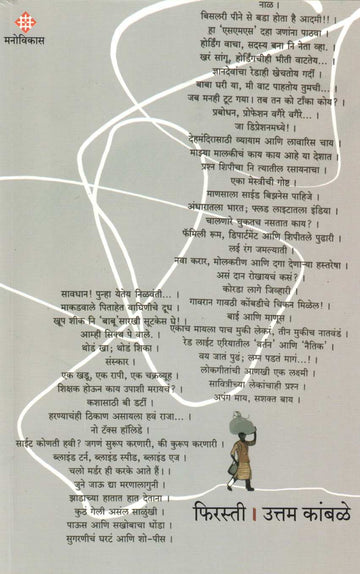 मनोविकास
नाळ ।
बिसलरी पीने से बडा होता है आदमी!! ।
हा 'एसएमएस' दहा जणांना पाठवा ।
होर्डिंग वाचा, सदस्य बना नि नेता व्हा. ।
खरं सांगू, होर्डिंगचीही भीती वाटतेय... ।
ज्ञानदेवांचा रेडाही खेचतोय गर्दी ।
बाबा घरी या, मी वाट पाहतोय तुमची... ।
जब मनही टूट गया। तब तन को टाँका कोय? ।
प्रबोधन, प्रोफेशन वगैरे वगैरे... ।
जा डिप्रेशनमध्ये! ।
देहमंदिरासाठी व्यायाम आणि लावारिस चाय ।
माझ्या मालकीचं काय काय आहे या देशात ।
प्रश्न शिपीचा नि त्यातील रसायनाचा ।
एका मेस्त्रीची गोष्ट ।
माणसाला साईड बिझनेस पाहिजे ।
अंधारातला भारत; फ्लड लाइटातला इंडिया ।
चालणारे चुकतच नसतात काय? ।
फॅमिली रूम, डिपार्टमेंट आणि शिपीतले पुढारी ।
लई रंग जमल्याती ।
नवा करार, मोलकरीण आणि दगा देणाऱ्या हस्तरेषा ।
असं दान रोखायचं कसं? ।
कोरडा लागे जिव्हारी ।
गावरान गावठी कोंबडीचे चिकन मिळेल! ।
बाई आणि माणूस ।
एकाच मायला पाच मुकी लेकरं, तीन मुकीच नातवंडं ।
रेड लाईट एरियातील 'वर्तन' आणि 'नैतिक' ।
वय जातं पुढं; लग्न पडतं मागं...! ।
लोकगीतांची आणखी एक लक्ष्मी ।
सावित्रीच्या लेकांचाही प्रश्न ।
अपंग माय, सशक्त बाय ।
सावधान! पुन्हा येतेय निळवंती... ।
माकडवाले पिताहेत वाघिणीचे दूध ।
खूप शीक नि 'बाबू'सारखी सुटकेस घे! ।
आम्ही सिनेमे पे चाले. ।
थोडं खा; थोडं शिका ।
संस्कार ।
एक खडू, एक रापी, एक चक्रव्यूह ।
शिक्षक होऊन काय उपाशी मरायचं? ।
कशासाठी बी डर्टी ।
हरण्याचंही ठिकाण असायला हवं राजा... ।
नो टॅक्स हॉलिडे ।
साईट कोणती हवी? जगणं सुरूप करणारी, की कुरूप करणारी ।
ब्लाईंड टर्न, ब्लाईंड स्पीड, ब्लाईंड एज ।
चलो मर्डर ही करके आते हैं! ।
जुने जाऊ द्या मरणालागुनी ।
झाडाच्या हातात हात देताना ।
कुठे गेली असेल साळुंखी ।
पाऊस आणि सखोबाचा धोंडा ।
सुगरणीचं घरटं आणि शो-पीस ।
फिरस्ती । उत्तम कांबळे